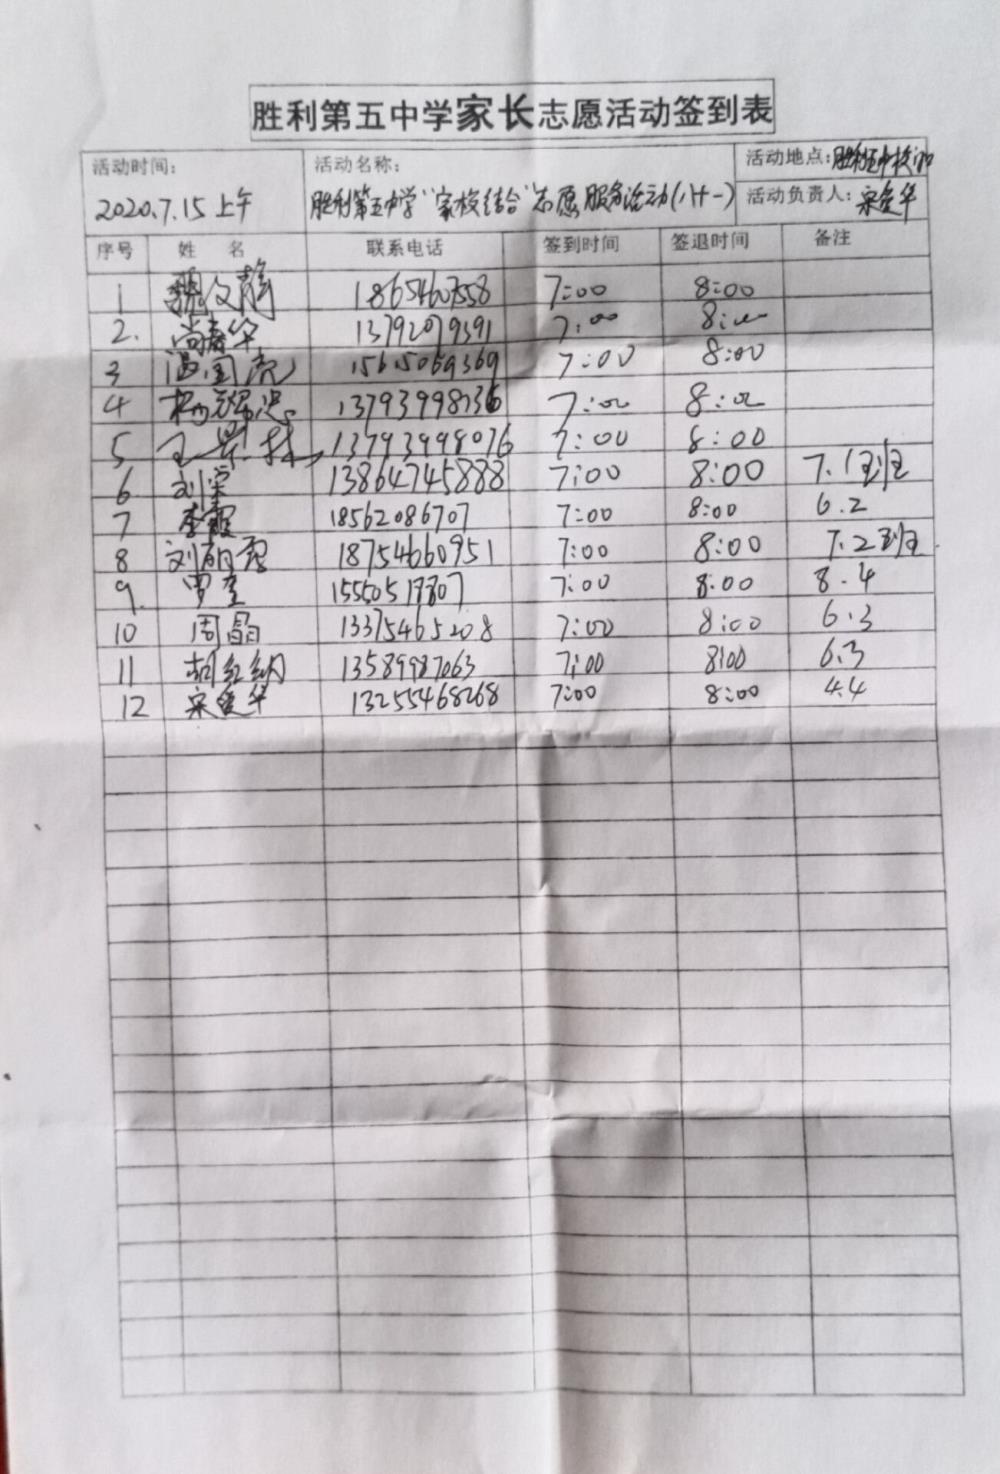 胜利第五中学家长志愿活动签到表
活动时间： 活动名称： 活动地点：胜利五中校门口
2020.7.15上午 胜利第五中学"家校结合"志愿服务活动(八十一) 活动负责人：宋爱华
序号 姓 名 联系电话 签到时间 签退时间 备注
1 魏文静 18654607558 7:00 8:00
2. 尚春华 13792079391 7:00 8:00
3 温国亮 15615069369 7:00 8:00
4 杨 13793998136 7:00 8:00
5 王 13793998076 7:00 8:00
6 刘荣 13864745888 7:00 8:00 7.1班
7 李霞 18562086707 7:00 8:00 6.2
8 刘 18754660951 7:00 8:00 7.2班
9. 罗奎 15550519807 7:00 8:00 8.4
10 周晶 13375465208 7:00 8:00 6.3
11 胡红纳 13589987063 7:00 8:00 6.3
12 宋爱华 13255468268 7:00 8:00 4.4